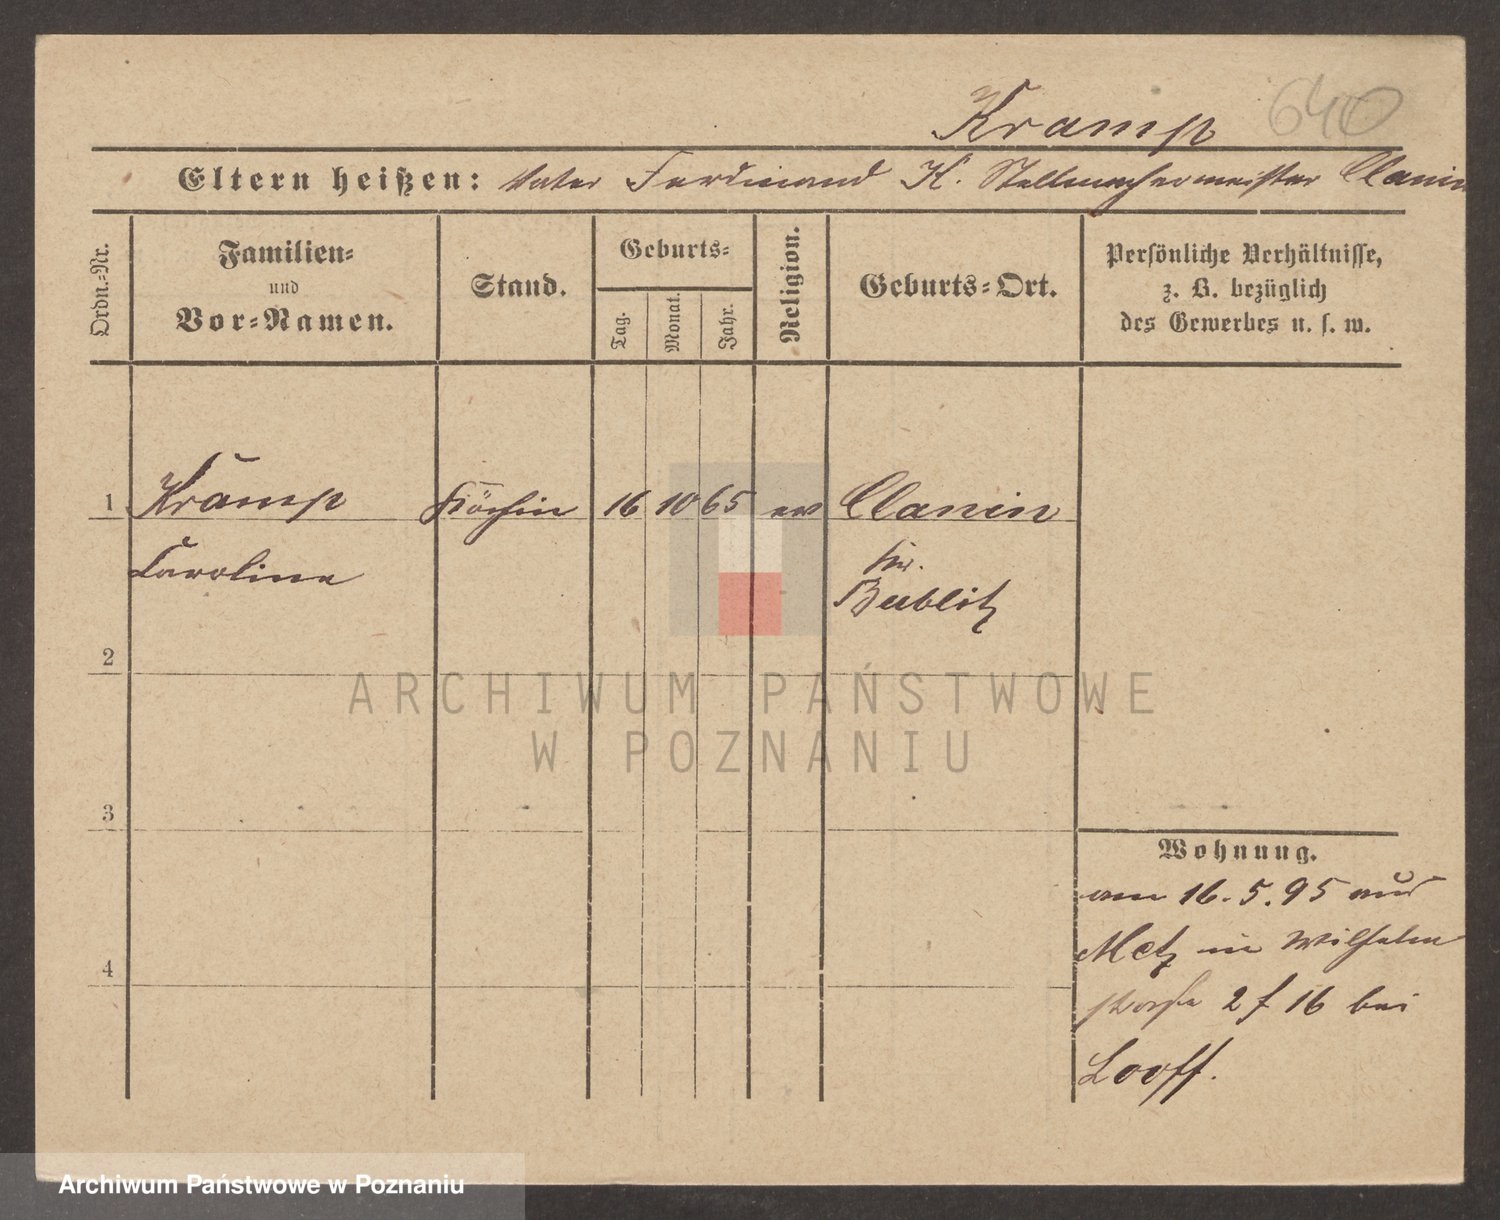 Kramp 640
Eltern heißen: Vater Ferdinand K. Stellmachermeister Clanin
Ordn.-Nr.
Familien-
und
Vor-Namen.
Stand.
Geburts-
Tag.
Monat.
Jahr.
Religion.
Geburts-Ort.
Persönliche Verhältnisse,
z. B. bezüglich
des Gewerbes u. s. w.
1 Kramp Köchin 16 10 65 ev Clanin
Caroline
Kr.
Bublitz
2
ARCHIWUM PAŃSTWOWE
W POZNANIU
3
Wohnung.
am 16.5.95 aus
Metz in Wilhelm
straße 2 f 16 bei
Looff.
4
Archiwum Państwowe w Poznaniu